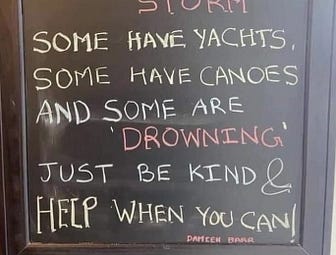 STORM
SOME HAVE YACHTS,
SOME HAVE CANOES
AND SOME ARE
'DROWNING'
JUST BE KIND &
HELP WHEN YOU CAN!
DAMIEN BARR